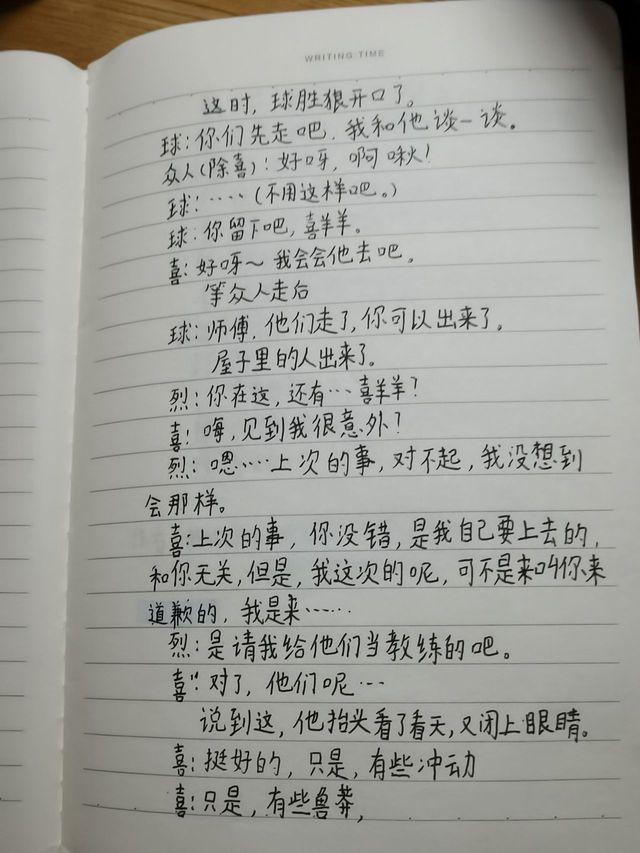 WRITING TIME
这时，球胜狼开口了。
球：你们先走吧，我和他谈一谈。
众人（除喜）：好呀，啊啾！
球：····（不用这样吧。）
球：你留下吧，喜羊羊。
喜：好呀～我会会他去吧。
等众人走后
球：师傅，他们走了，你可以出来了。
屋子里的人出来了。
烈：你在这，还有···喜羊羊？
喜：嗨，见到我很意外？
烈：嗯·····上次的事，对不起，我没想到
会那样。
喜：上次的事，你没错，是我自己要上去的，
和你无关，但是，我这次的呢，可不是来叫你来
道歉的，我是来·····
烈：是请我给他们当教练的吧。
喜：对了，他们呢···
说到这，他抬头看了看天，又闭上眼睛。
喜：挺好的，只是，有些冲动
喜：只是，有些鲁莽，